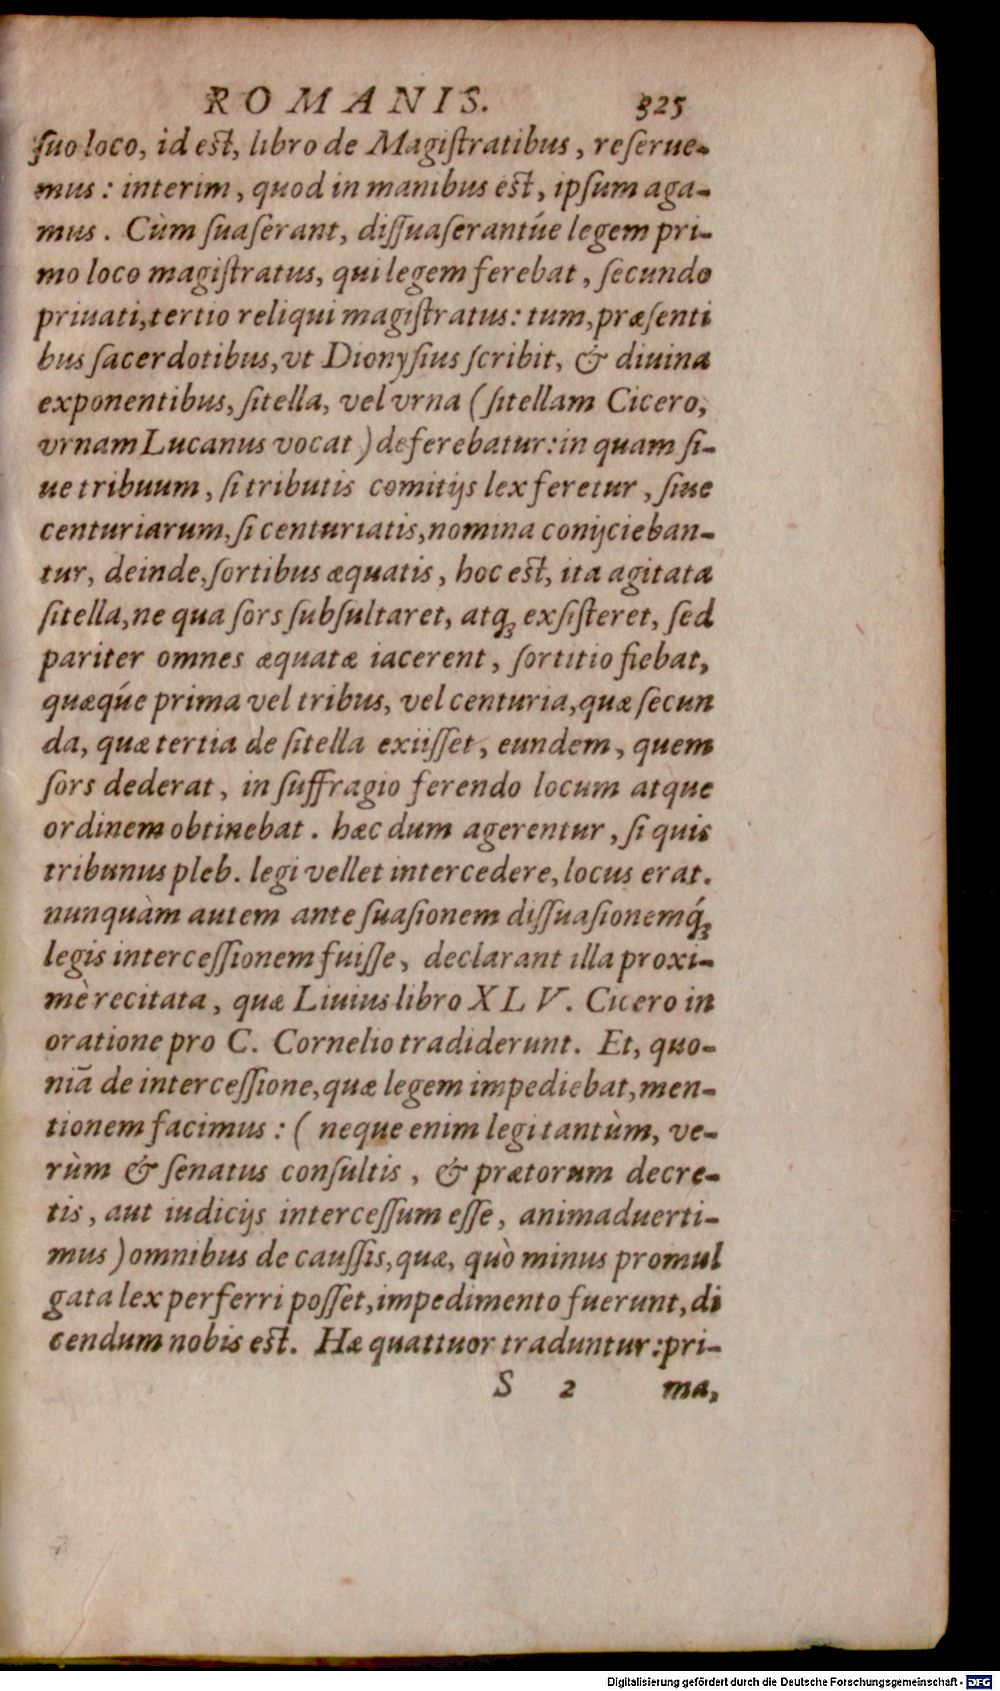 ROMANIS. 325
ſuo loco, id eſt, libro de Magiſtratibus, reſerue-
mus: interim, quod in manibus est, ipſum aga-
mus. Cùm ſuaſerant, diſſuaſerantúe legem pri-
mo loco magiſtratus, qui legem ferebat, ſecundo
priuati, tertio reliqui magiſtratus: tum, præſenti
bus ſacerdotibus, vt Dionyſius ſcribit, & diuina
exponentibus, ſitella, vel vrna (ſitellam Cicero,
vrnam Lucanus vocat) deferebatur: in quam ſi-
ue tribuum, ſi tributis comitijs lex feretur, ſiue
centuriarum, ſi centuriatis, nomina conijcieban-
tur, deinde, ſortibus æquatis, hoc eſt, ita agitata
ſitella, ne qua ſors ſubſultaret, atq; exſiſteret, ſed
pariter omnes æquatæ iacerent, ſortitio fiebat,
quæqúe prima vel tribus, vel centuria, quæ ſecun
da, quæ tertia de ſitella exiiſſet, eundem, quem
ſors dederat, in ſuffragio ferendo locum atque
ordinem obtinebat. hæc dum agerentur, ſi quis
tribunus pleb. legi vellet intercedere, locus erat.
nunquàm autem ante ſuaſionem diſſuaſionemq́;
legis interceſſionem fuiſſe, declarant illa proxi-
mè recitata, quæ Liuius libro XLV. Cicero in
oratione pro C. Cornelio tradiderunt. Et, quo-
niā de interceſſione, quæ legem impediebat, men-
tionem facimus: (neque enim legi tantùm, ve-
rùm & ſenatus conſultis, & prætorum decre-
tis, aut iudicijs interceſſum eſſe, animaduerti-
mus) omnibus de cauſſis, quæ, quò minus promul
gata lex perferri poſſet, impedimento fuerunt, di
cendum nobis eſt. Hæ quattuor traduntur: pri-
S 2 ma,
Digitalisierung gefördert durch die Deutsche Forschungsgemeinschaft - DFG